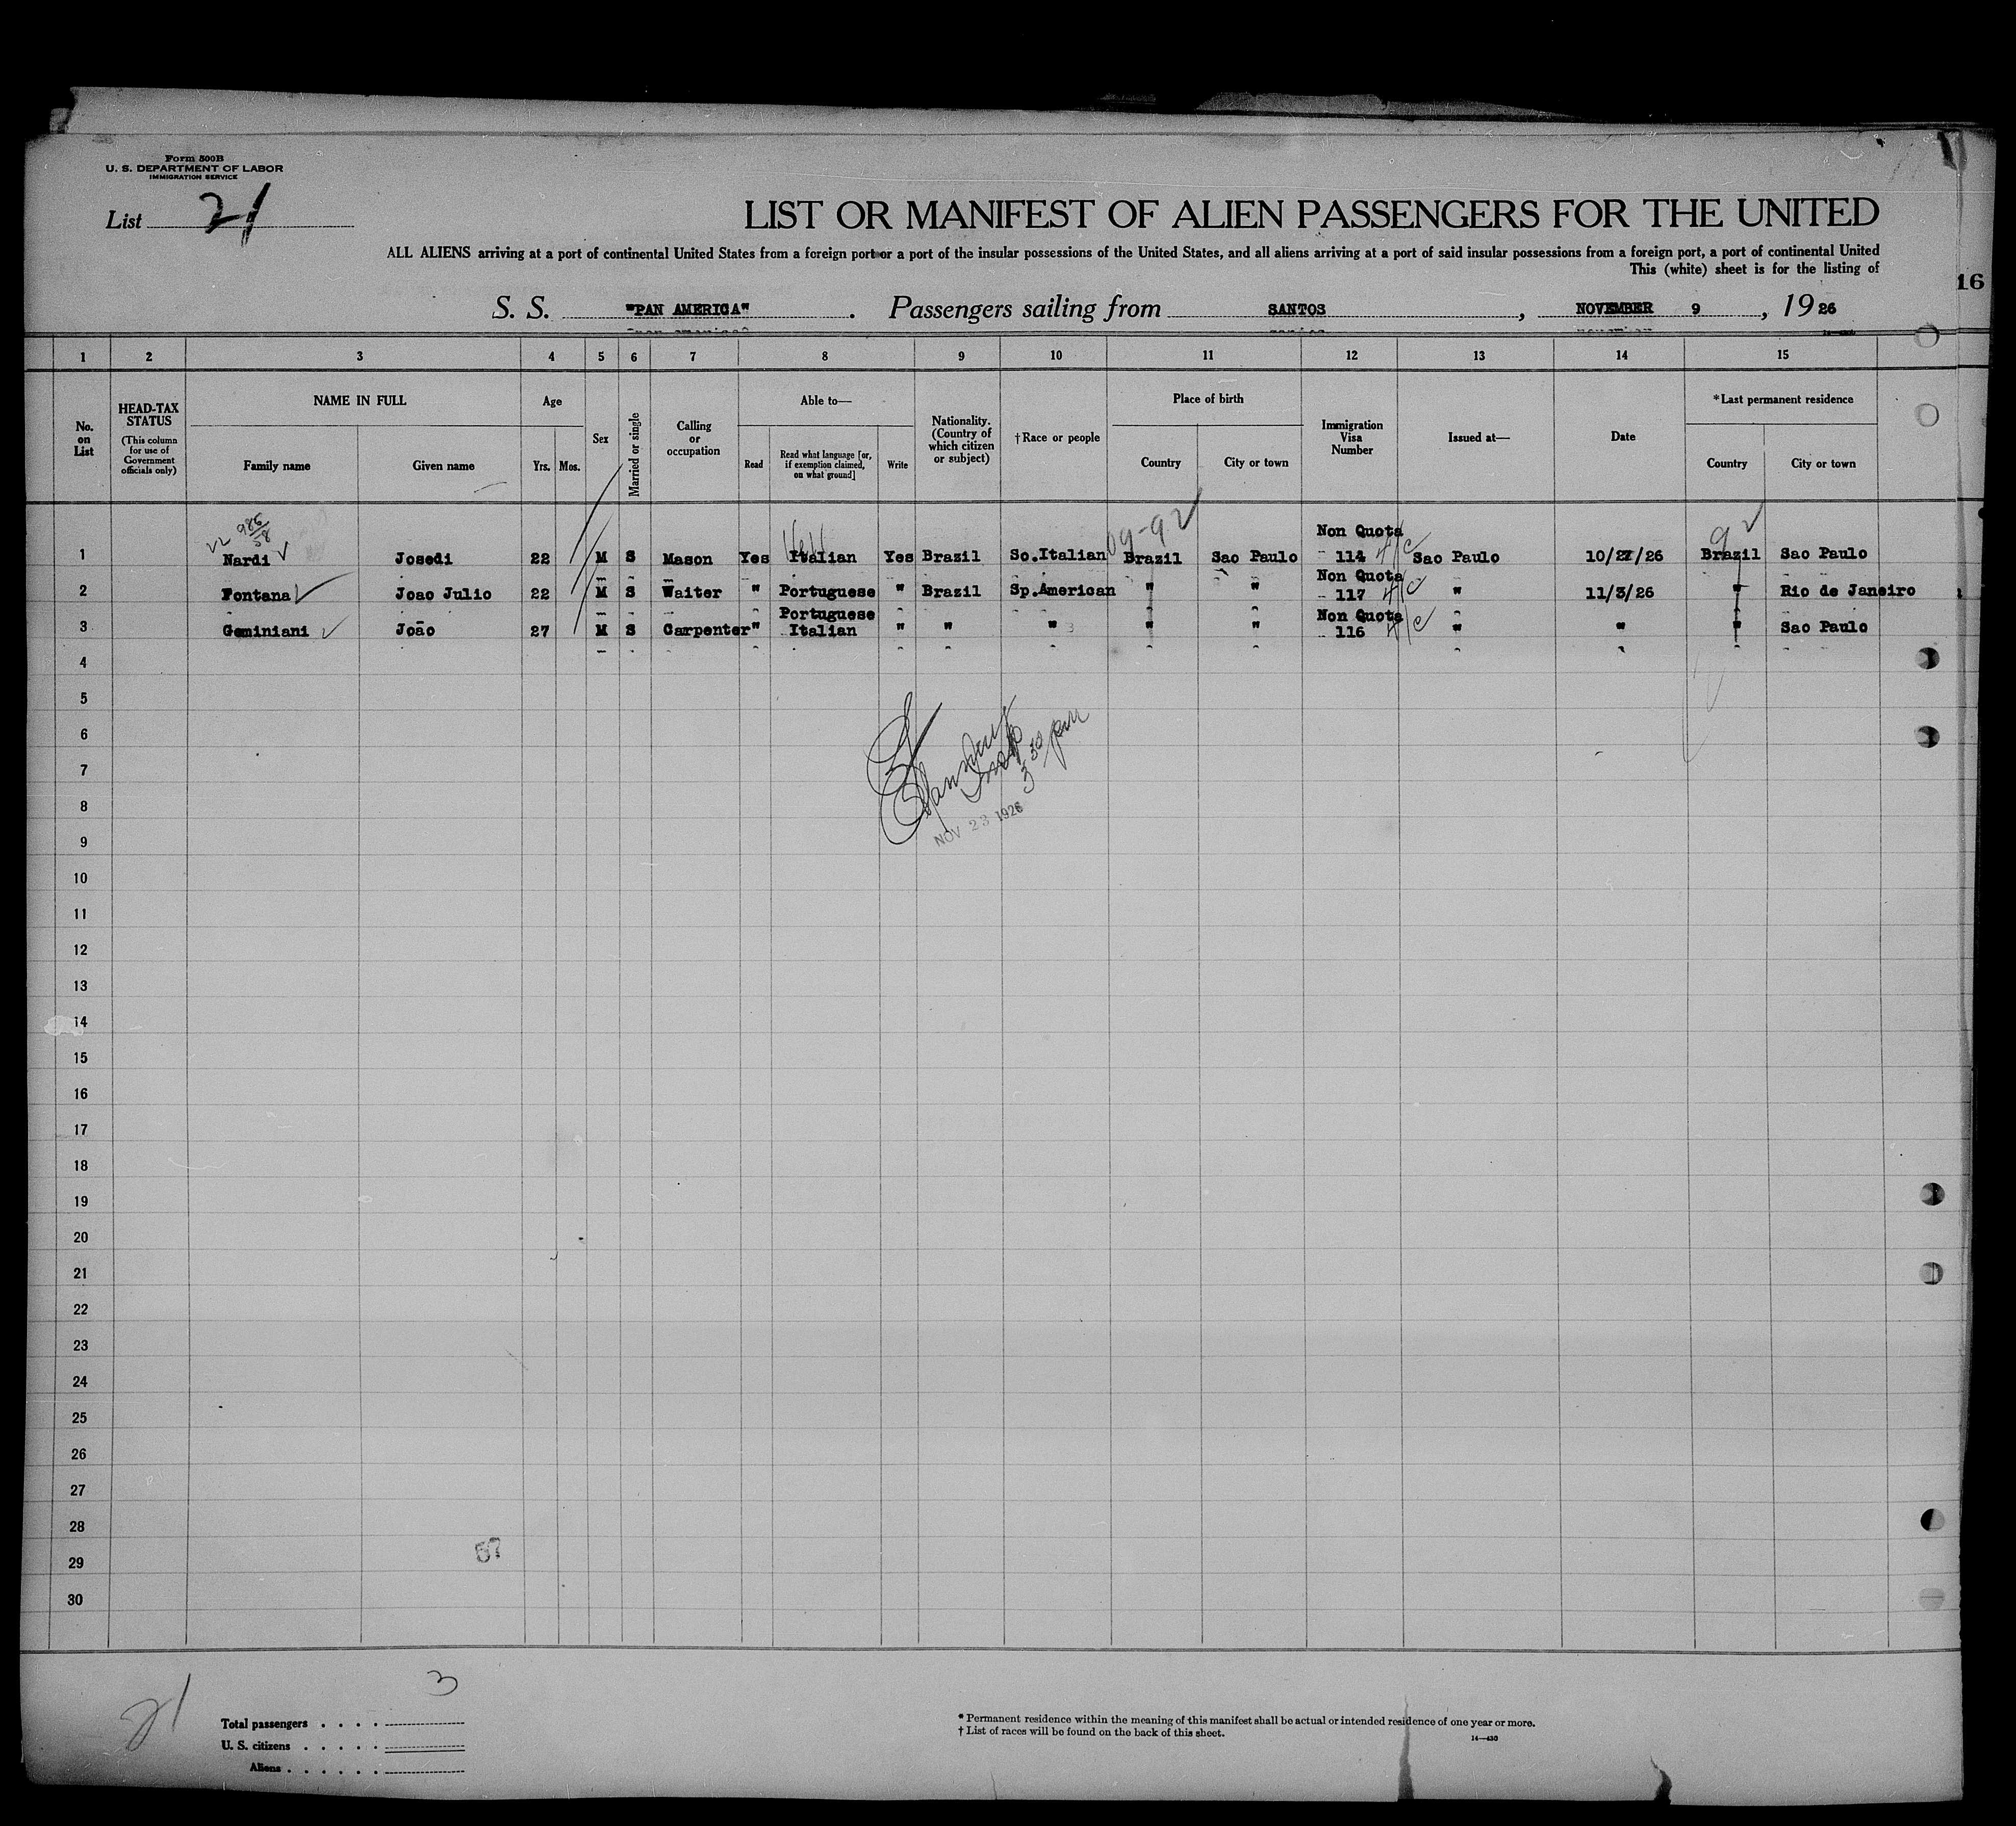 Form 500B
U. S. DEPARTMENT OF LABOR
IMMIGRATION SERVICE
List 21
LIST OR MANIFEST OF ALIEN PASSENGERS FOR THE UNITED
ALL ALIENS arriving at a port of continental United States from a foreign port or a port of the insular possessions of the United States, and all aliens arriving at a port of said insular possessions from a foreign port, a port of continental United
This (white) sheet is for the listing of
16
S. S. "PAN AMERICA". Passengers sailing from SANTOS, NOVEMBER 9, 1926
1 2 3 4 5 6 7 8 9 10 11 12 13 14 15
No. on List
HEAD-TAX STATUS (This column for use of Government officials only)
NAME IN FULL
Family name
Given name
Age
Yrs. Mos.
Sex
Married or single
Calling or occupation
Able to—
Read
Read what language [or, if exemption claimed, on what ground]
Write
Nationality. (Country of which citizen or subject)
†Race or people
Place of birth
Country
City or town
Immigration Visa Number
Issued at—
Date
*Last permanent residence
Country
City or town
986/58
09-92
9
1 Nardi Josedi 22 M S Mason Yes Italian Yes Brazil So.Italian Brazil Sao Paulo Non Quota 114 4/c Sao Paulo 10/27/26 Brazil Sao Paulo
2 Fontana Joao Julio 22 M S Waiter " Portuguese " Brazil Sp.American " " Non Quota 117 4/c " 11/3/26 " Rio de Janeiro
3 Geminiani João 27 M S Carpenter " Portuguese Italian " " " " " Non Quota 116 4/c " " " Sao Paulo
4
5
6
7
3 30 pm
8
9
NOV 23 1926
10
11
12
13
14
15
16
17
18
19
20
21
22
23
24
25
26
27
28
29
30
3
21
Total passengers . . . .
U. S. citizens . . . . .
Aliens . . . . . .
* Permanent residence within the meaning of this manifest shall be actual or intended residence of one year or more.
† List of races will be found on the back of this sheet.
14—430